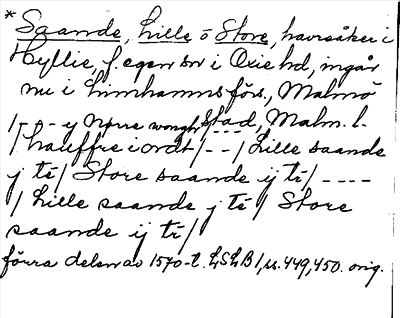 * Saande, Lille o Store, havsåker i
Hyllie, f. egen sn i Oxie hd, ingår
nu i Limhamns förs., Malmö
stad, Malm. l.
/hauffre iordt/--/Lille saande
j tr/ Store saande ij tr/----
/Lille saande j tr/ Store
saande ij tr/
förra delen av 1570-t. LSLB1, ss. 449, 450. orig.